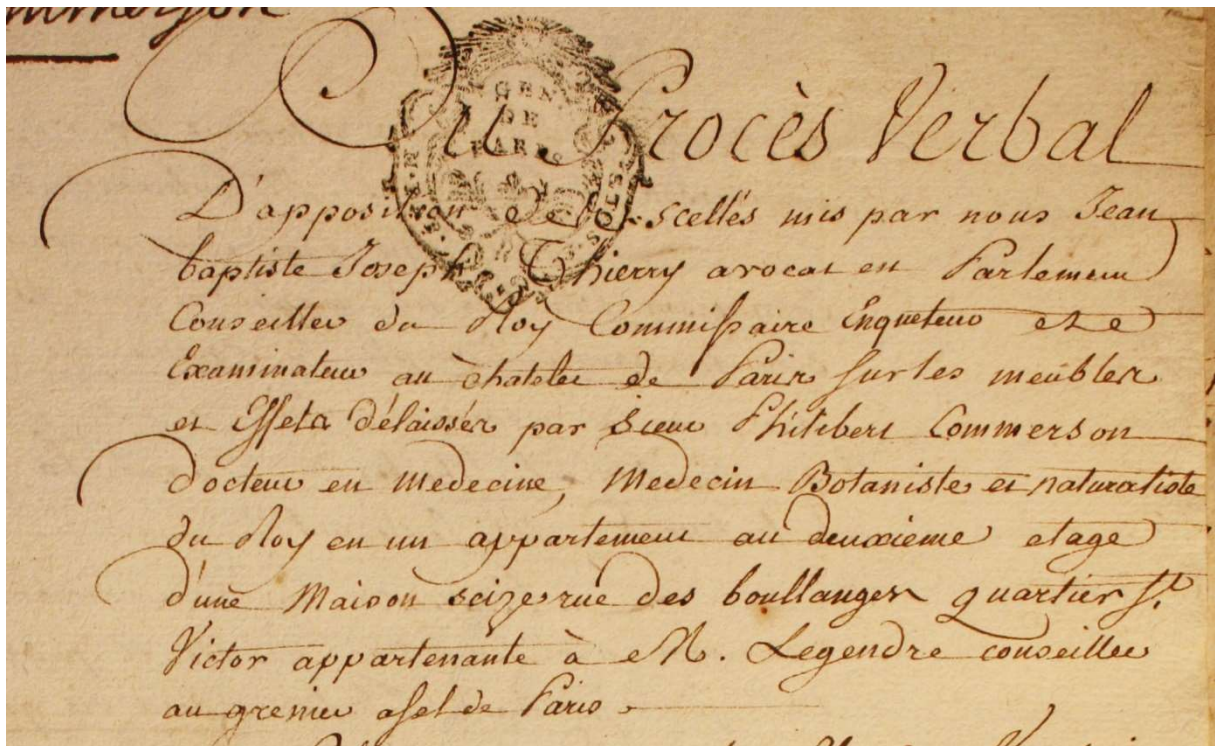 mmerson
GEN
DE
PARIS
Du Procès Verbal
D'apposition de scellés mis par nous Jean
baptiste Joseph Thierry avocat en Parlement
Conseiller du Roy Commissaire Enqueteur et
Examinateur au chatelet de Paris sur les meubles
et Effets délaissés par Sieur Philibert Commerson
docteur en Medecine, Medecin Botaniste et naturaliste
du Roy en un appartement au deuxieme etage
d'une Maison seize rue des boullangers quartier St.
Victor appartenante à M. Legendre conseiller
au grenier asel de Paris